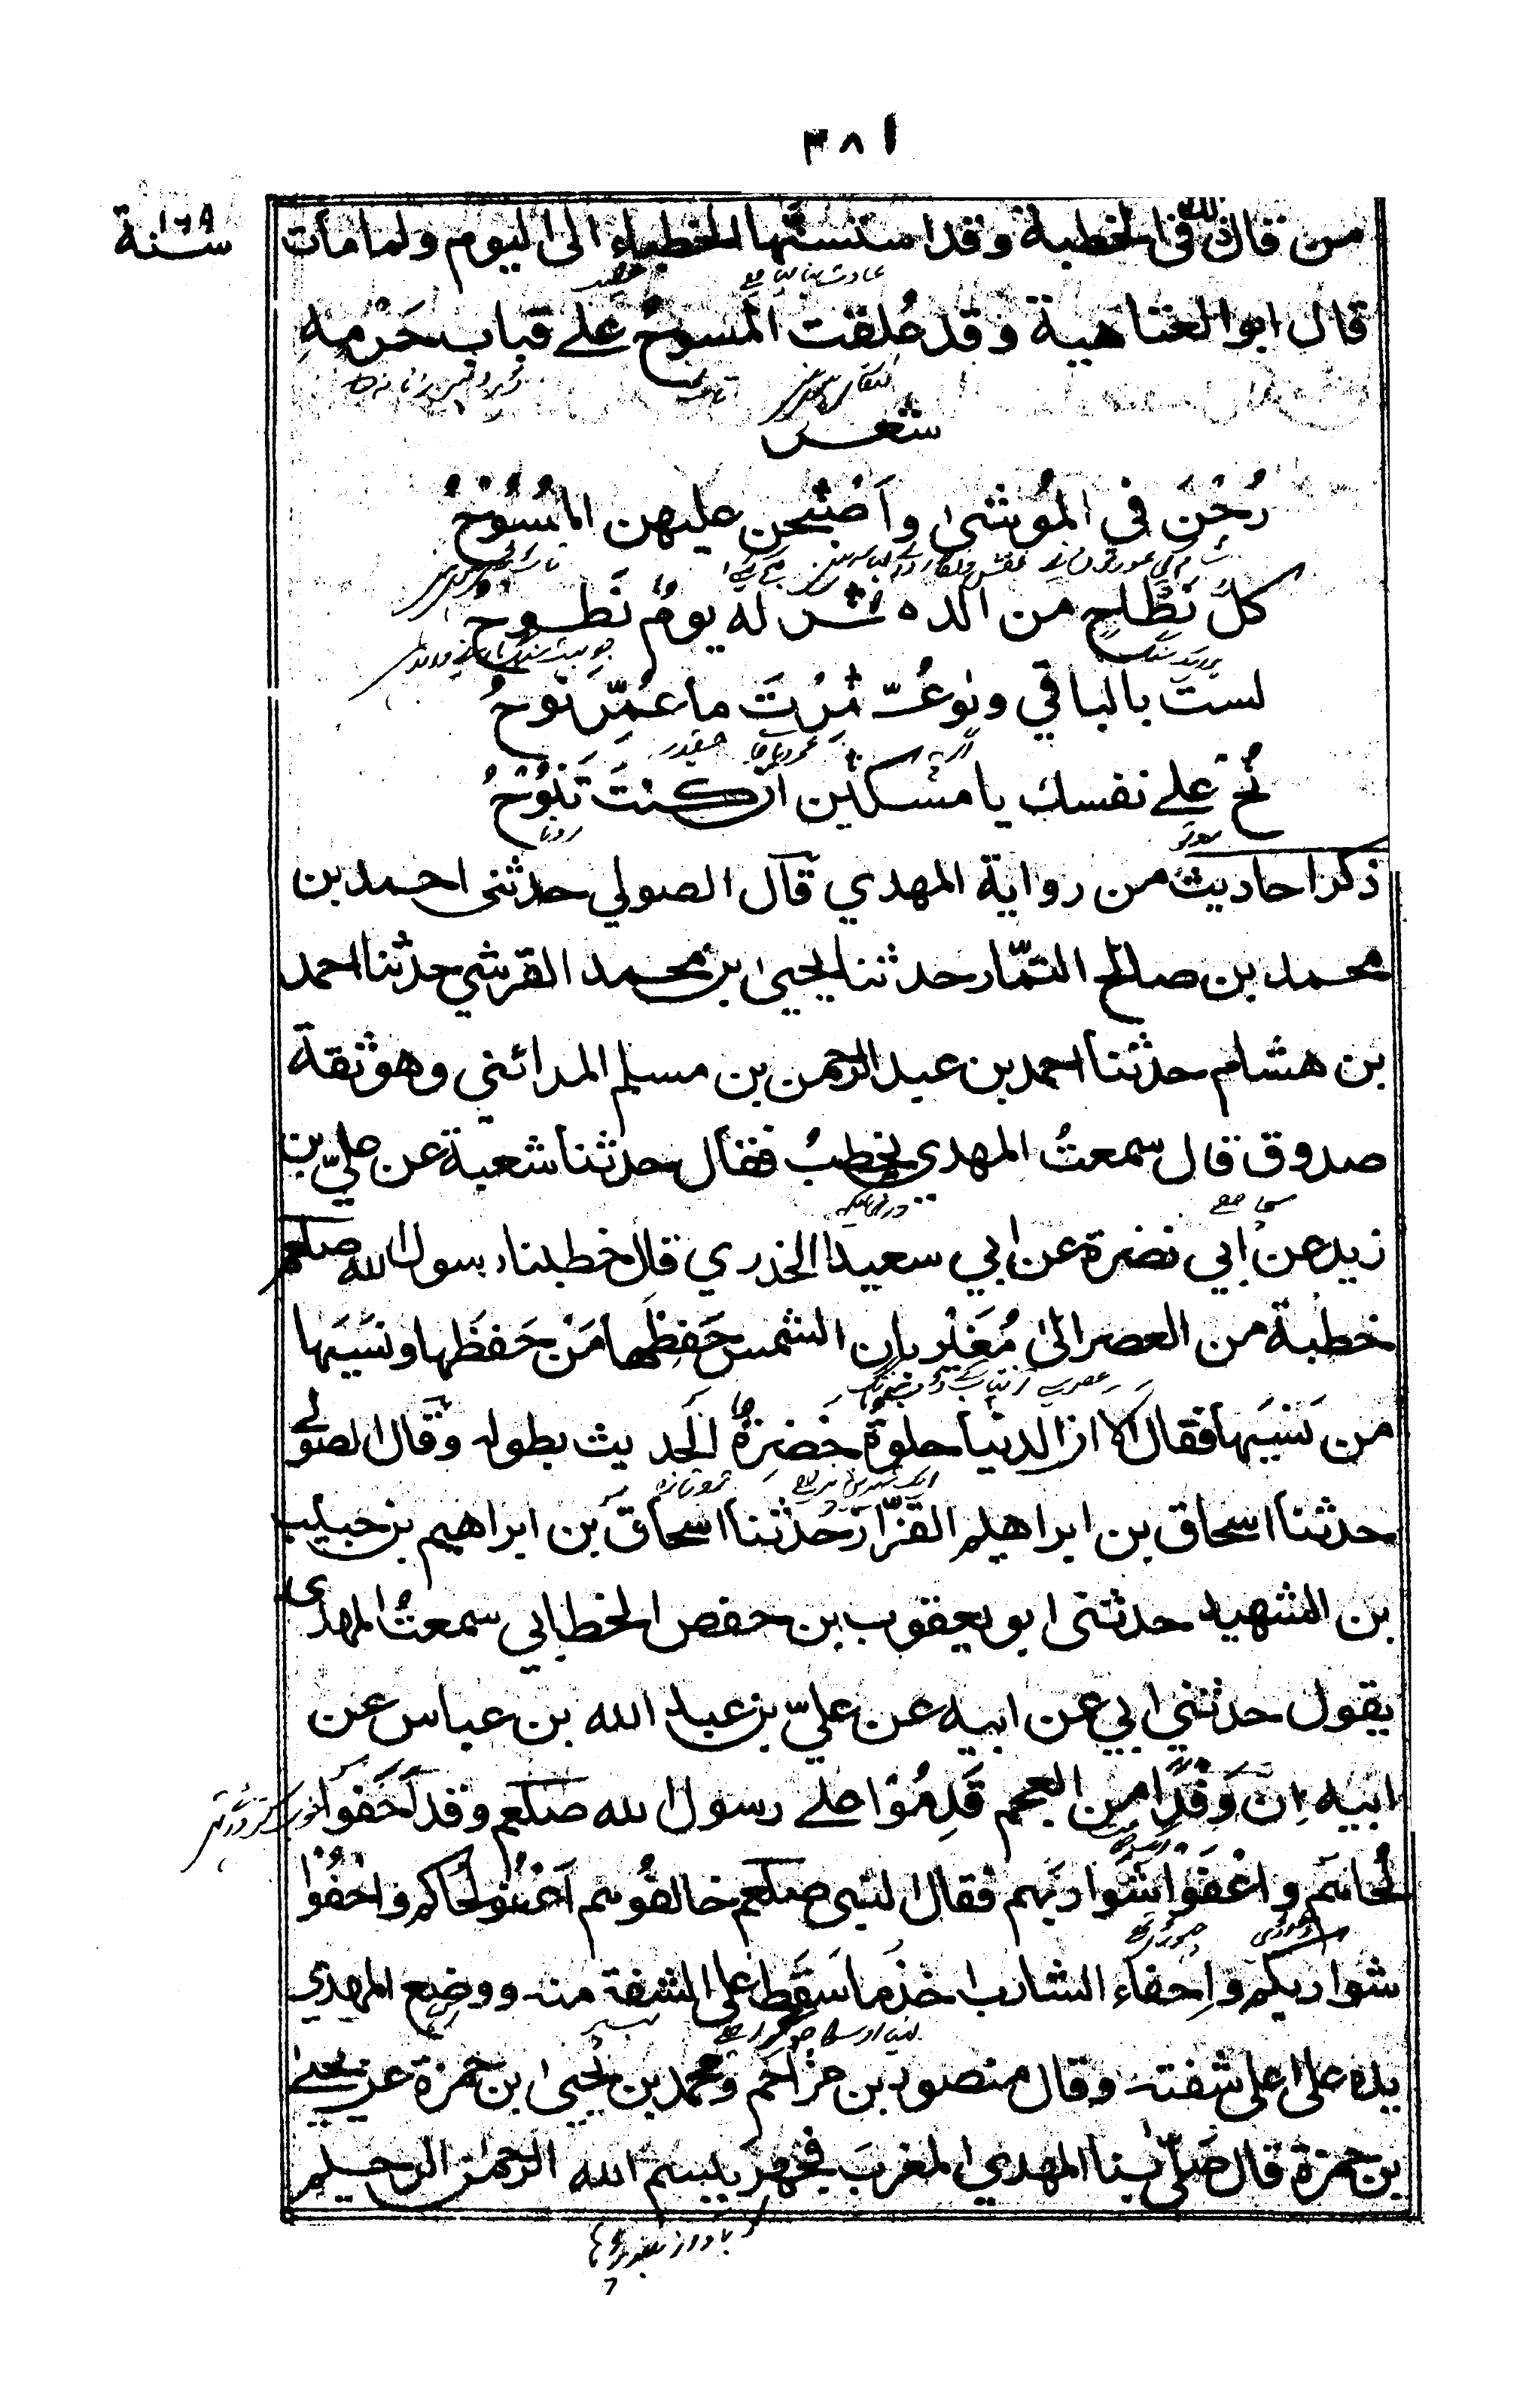 ٣٨١
سنة ١٦٩
من قال ذلك فى الخطبة وقد استسنّها الخطباء الى اليوم ولما مات
قال ابو العتاهية وقد علقت المسوحُ على قباب حَرْمه
شعر
رُحْنَ فى المُوشىٰ واَصْبَحن عليهن المُسُوْحُ
كلُّ نَطَّاحٍ من الدهر له يومٌ نَطُوح
لستَ بالباقي ولو عُمِّرْتَ ما عُمِّر نوحُ
نُحْ على نفسك يا مسكين ان كنتَ تَنُوْحُ
ذكر احاديث من رواية المهدي قال الصولي حدثنى احمد بن
محمد بن صالح التمّار حدثنا يحيىٰ بن محمد القرشي حدثنا احمد
بن هشام حدثنا احمد بن عبد الرحمن بن مسلم المدائني وهو ثقة
صدوق قال سمعتُ المهدي يخطبُ فقال حدثنا شعبة عن عليّ بن
زيد عن ابي نضرة عن ابي سعيد الخدري قال خطبنا رسول الله صلعم
خطبة من العصر الىٰ مُغَيْرِبان الشمس حَفِظَها مَنْ حَفِظَها ونَسِيَها
من نَسِيَها فقال الا ان الدنيا حلوة خَضِرَةٌ الحَديث بطوله وقال الصولي
حدثنا اسحاق بن ابراهيم القزّاز حدثنا اسحاق بن ابراهيم بن حبيب
بن الشهيد حدثنى ابو يعقوب بن حفص الخطابي سمعتُ المهدى
يقول حدثني ابي عن ابيه عن عليّ بن عبد الله بن عباس عن
ابيه اِنّ وَفْدًا من العجم قَدِمُوْا على رسول الله صلعم وقد اَحْفَوا
لُحاهم واعْفَوْا شَواربَهم فقال النبى صلعم خالفُوهم اَعْفُوْا لُحاكم واحْفُوْا
شواربكم واِحفاء الشارب اخذ ما سَقَط على الشفة منه ووضع المهدي
يده على اعلى شفته وقال منصور بن مزاحم ومحمد بن يحيىٰ بن حمزة عن يحيىٰ
بن حمزة قال صَلّىٰ بنا المهدي المغربَ فجهرَ ببسم الله الرحمٰن الرحيم